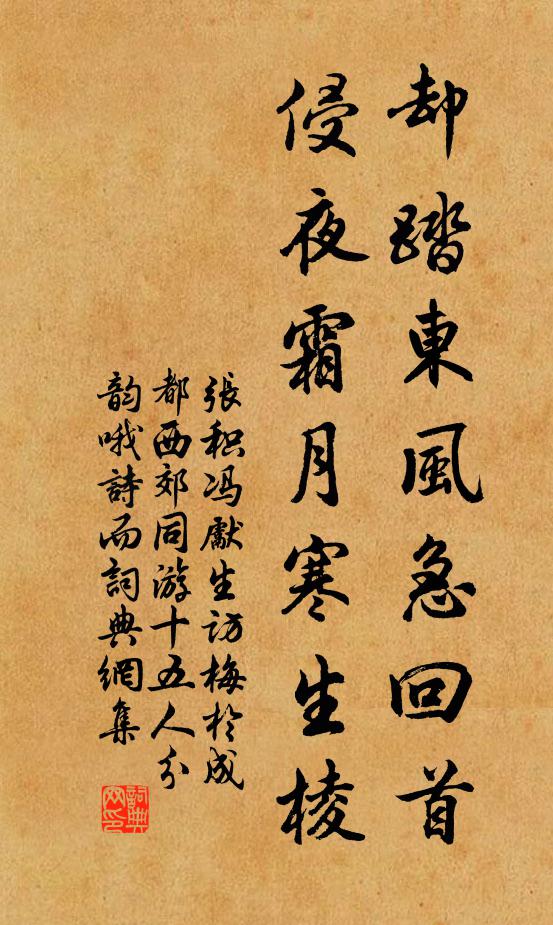 却踏東風急回首
侵夜霜月寒生棱
張积馮獻生訪梅於成
都西郊同游十五人分
韵哦詩而詞典網集
詞典網印